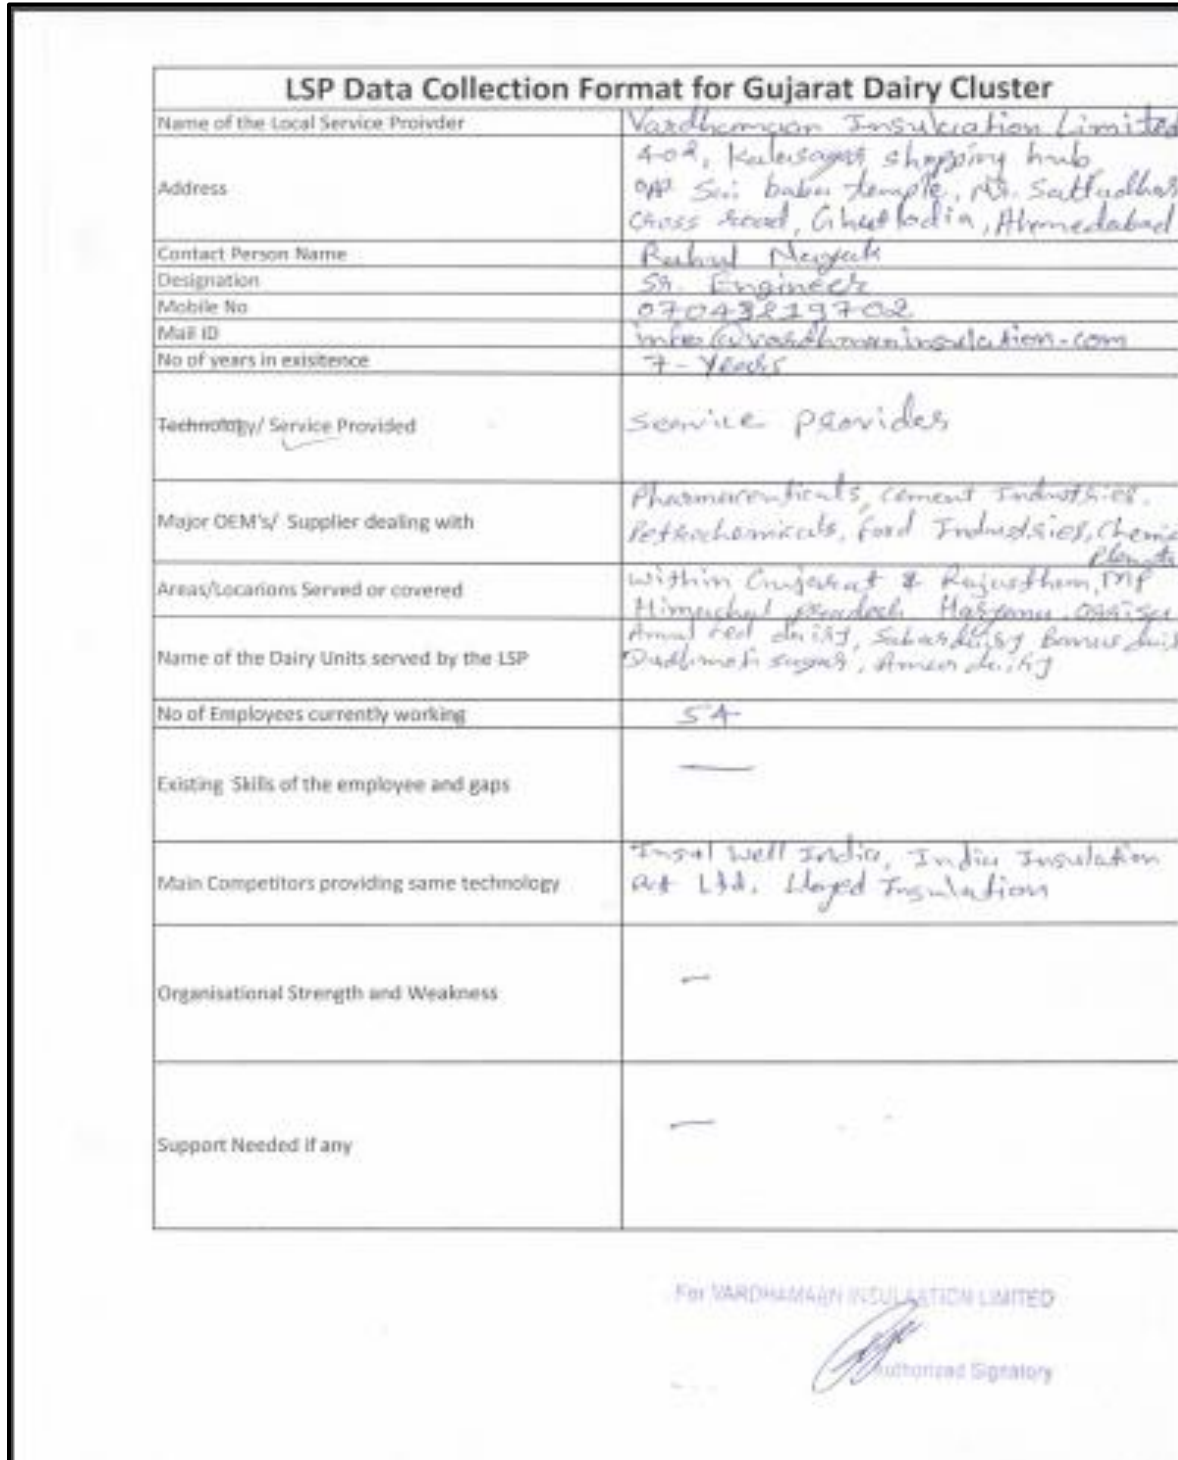 LSP Data Collection Format for Gujarat Dairy Cluster
Name of the Local Service Proivder
Vardhamaan Insulation Limited
Address
402, Kalasagar shopping hub
opp Sai baba temple, Nr. Sattadhar
Cross road, Ghatlodia, Ahemedabad
Contact Person Name
Rahul Nayak
Designation
Sr. Engineer
Mobile No
Mail ID
info@vardhmaninsulation.com
No of years in exisitence
7 - Years
Technology/ Service Provided
Service provider
Major OEM's/ Supplier dealing with
Pharmaceuticals, cement Industries.
Petrochemicals, food Industries, Chemic
plants
Areas/Locarions Served or covered
within Gujarat & Rajasthan, MP
Himachal pradesh Haryana
Name of the Dairy Units served by the LSP
Amul dairy, Sabardairy Banas dai
sugar, dairy
No of Employees currently working
54
Existing Skills of the employee and gaps
—
Main Competitors providing same technology
Insul well India, India Insulation
Ltd. Lloyed Insulation
Organisational Strength and Weakness
—
Support Needed if any
—
For VARDHAMAAN INSULAATION LIMITED
Authorized Signatory